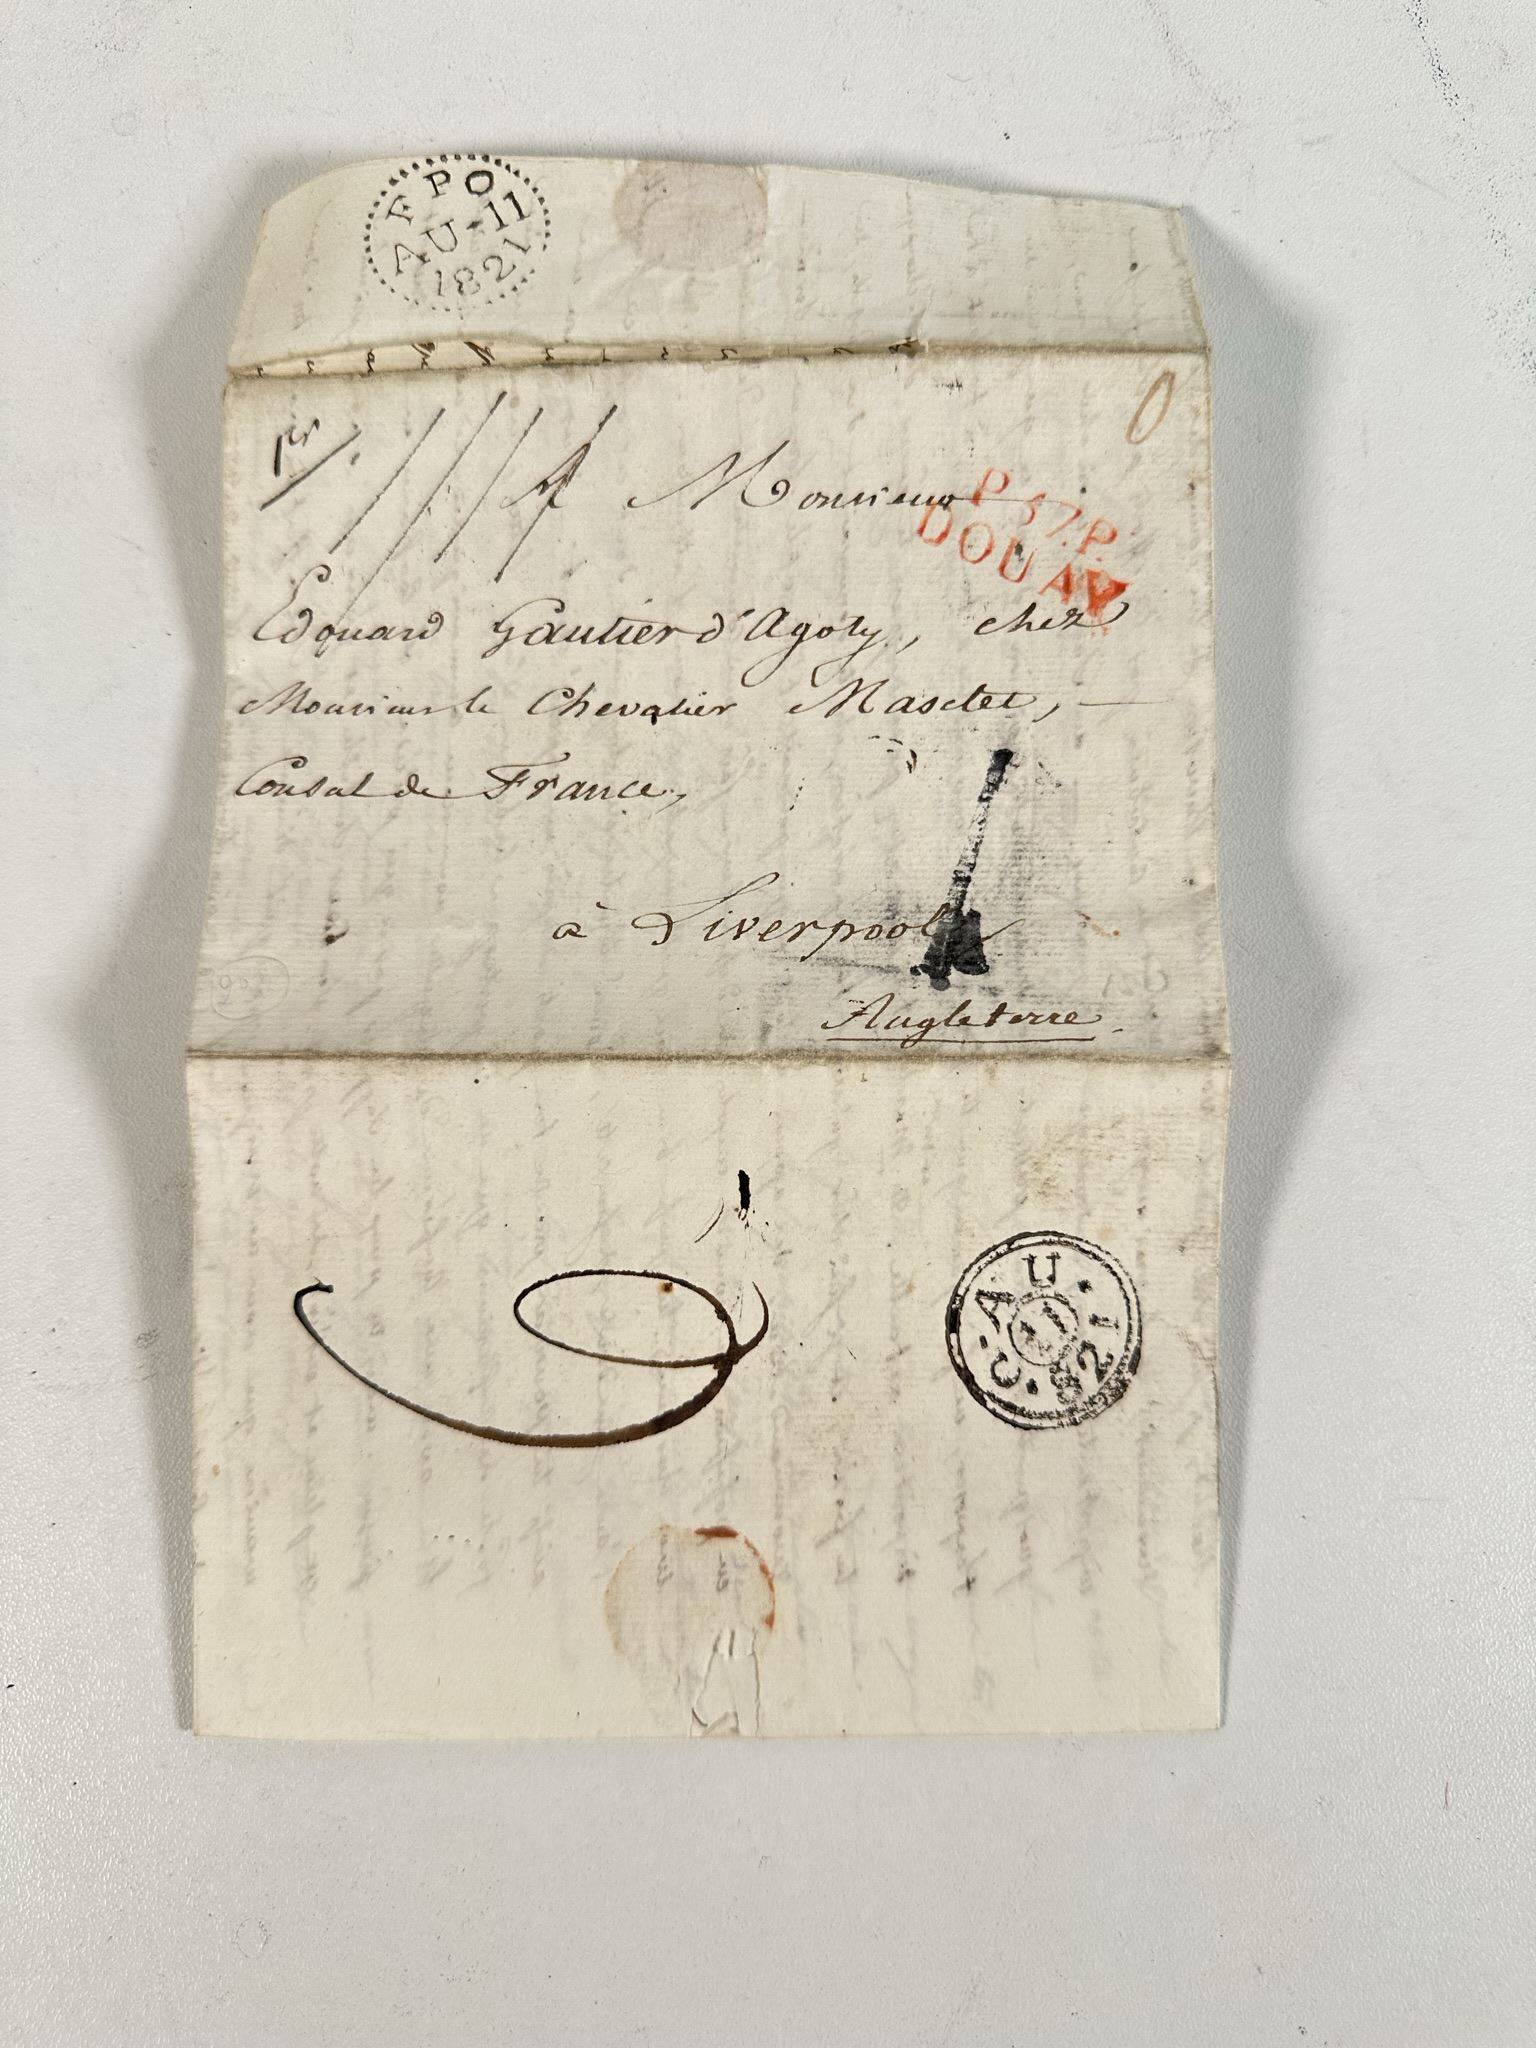 FPO
AU-11
1821
A Monsieur
P.57.P.
DOUAY
Edouard Gautier d'Agoty, chez
Monsieur le Chevalier Masclet,
Consul de France,
à Liverpool
Angleterre.
C·AU·
11
821